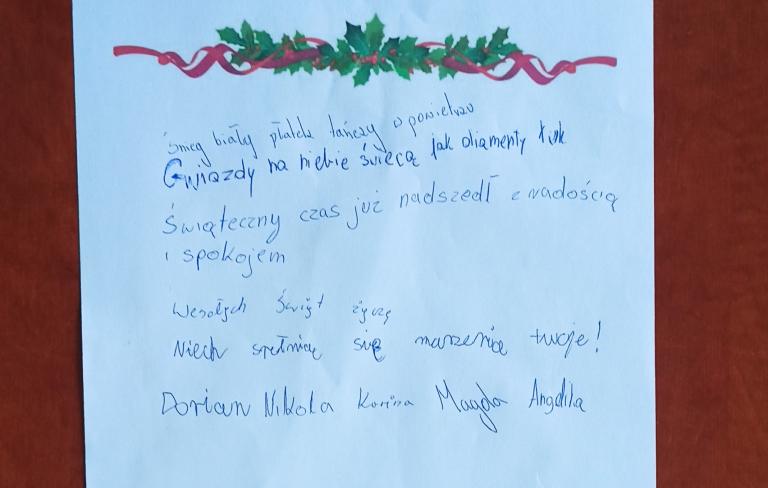 Śnieg biały płatek tańczy w powietrzu
Gwiazdy na niebie świecą jak diamenty
Świąteczny czas już nadszedł z radością
i spokojem
Wesołych Świąt życzę
Niech spełnią się marzenia twoje!
Dorian Nikola Korina Magda Angelika